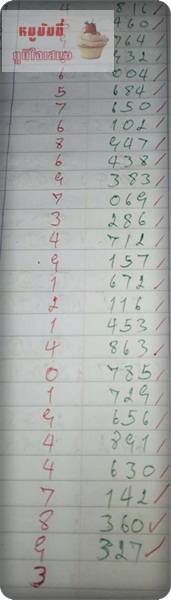 4 816
460
764
หมูบัมมี่
432
ภูมิใจเสนอ
6 004
5 684
7 650
6 102
8 947
6 438
9 383
7 069
3 286
4 712
9 157
1 672
2 116
1 453
4 863
0 785
1 729
9 656
4 891
4 630
7 142
8 360
9 327
3